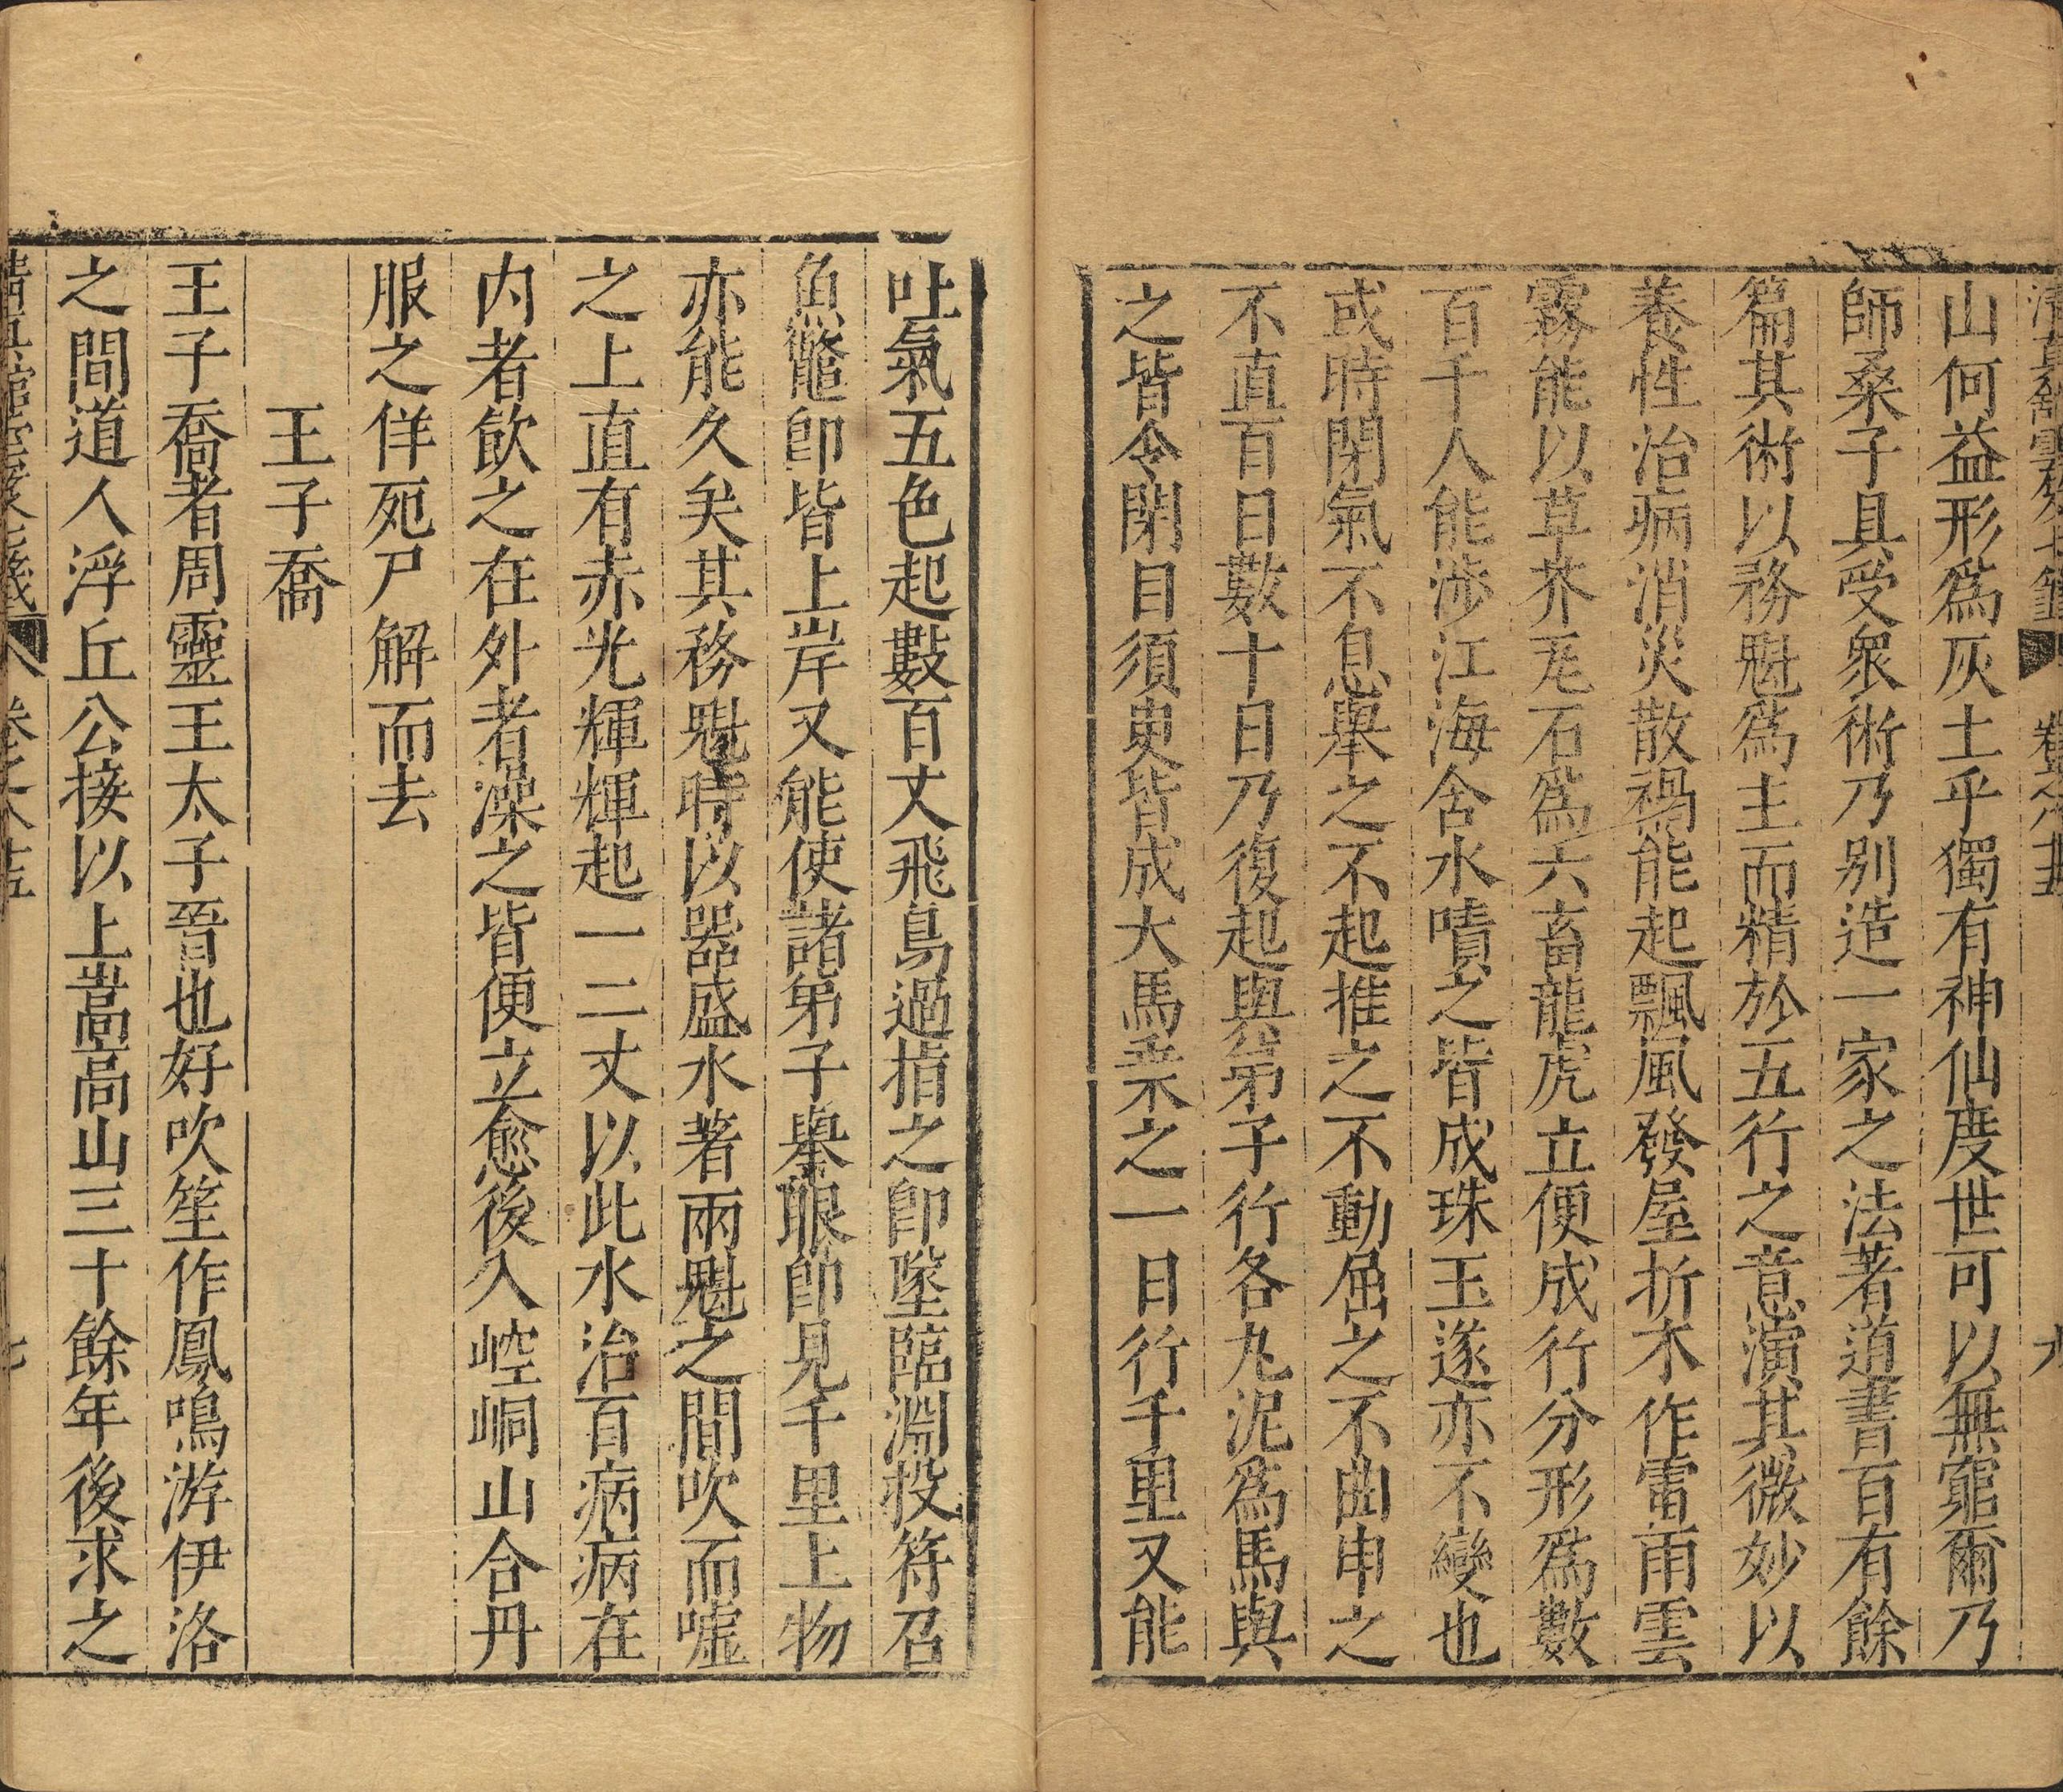 清真館雲笈七籤
卷之
九
山何益形爲灰土乎獨有神仙度世可以無窮爾乃
師桑子具受衆術乃别造一家之法著道書百有餘
篇其術以務魁爲主而精於五行之意演其微妙以
養性治病消災散禍能起飄風發屋折木作雷雨雲
霧能以草芥瓦石爲六畜龍虎立便成行分形爲數
百千人能渉江海含水噴之皆成珠玉遂亦不變也
或時閉氣不息舉之不起推之不動屈之不曲申之
不直百日數十日乃復起與弟子行各丸泥爲馬與
之皆令閉目須臾皆成大馬乗之一日行千里又能
吐氣五色起數百丈飛鳥過指之卽墜臨淵投符召
魚鼈卽皆上岸又能使諸弟子舉眼卽見千里上物
亦能久矣其務魁時以器盛水著兩魁之間吹而噓
之上直有赤光輝輝起一二丈以此水治百病病在
内者飲之在外者澡之皆便立愈後入崆峒山合丹
服之佯死尸解而去
王子喬
王子喬者周靈王太子晉也好吹笙作鳳鳴游伊洛
之間道人浮丘公接以上嵩高山三十餘年後求之